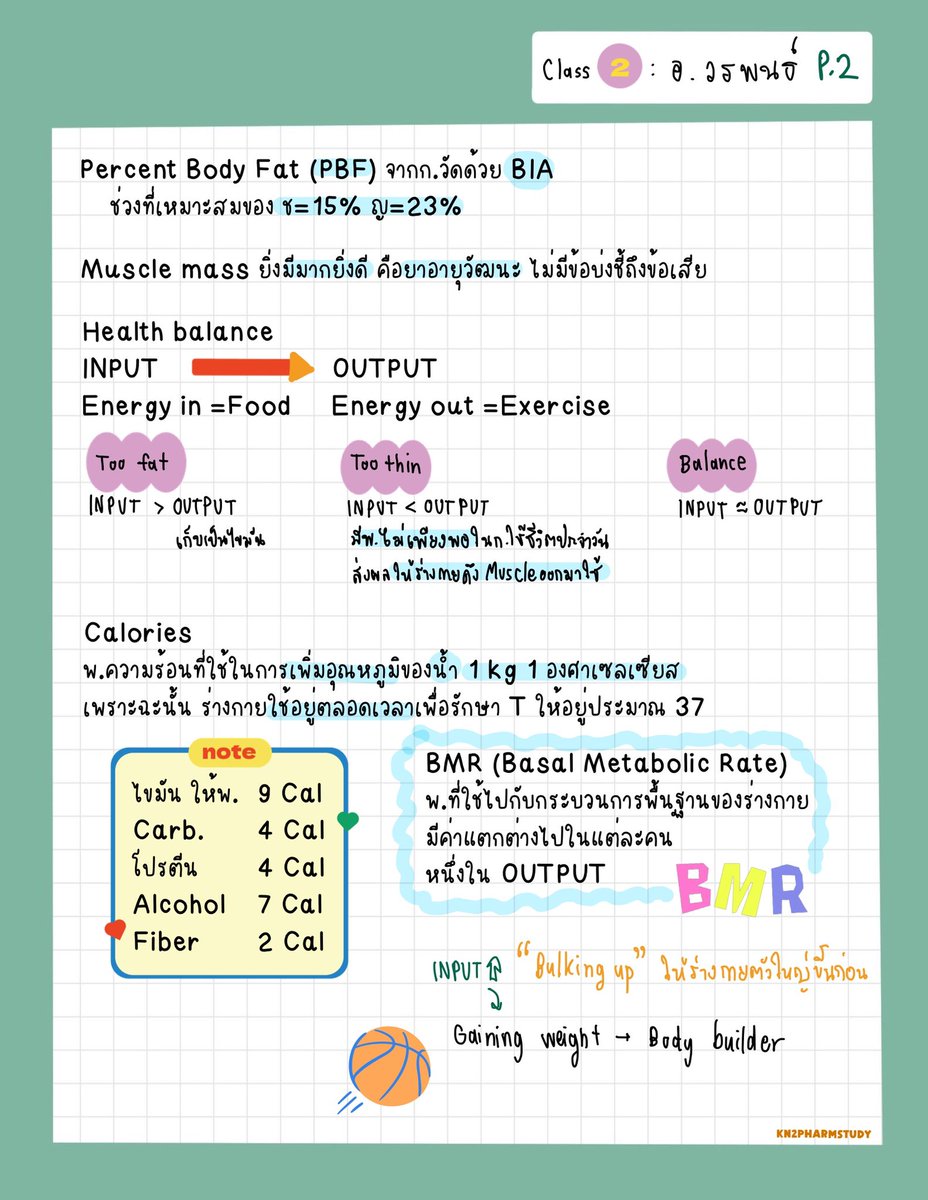 Class 2 : อ. วรพนธ์ P.2
Percent Body Fat (PBF) จากก.วัดด้วย BIA
ช่วงที่เหมาะสมของ ช=15% ญ=23%
Muscle mass ยิ่งมีมากยิ่งดี คือยาอายุวัฒนะ ไม่มีข้อบ่งชี้ถึงข้อเสีย
Health balance
INPUT OUTPUT
Energy in =Food Energy out =Exercise
Too fat Too thin Balance
INPUT > OUTPUT INPUT < OUTPUT INPUT ≈ OUTPUT
เก็บเป็นไขมัน มีพ.ไม่เพียงพอในก.ใช้ชีวิตประจำวัน
ส่งผลให้ร่างกายดึง Muscle ออกมาใช้
Calories
พ.ความร้อนที่ใช้ในการเพิ่มอุณหภูมิของน้ำ 1 kg 1 องศาเซลเซียส
เพราะฉะนั้น ร่างกายใช้อยู่ตลอดเวลาเพื่อรักษา T ให้อยู่ประมาณ 37
note
ไขมัน ให้พ. 9 Cal
Carb. 4 Cal
โปรตีน 4 Cal
Alcohol 7 Cal
Fiber 2 Cal
BMR (Basal Metabolic Rate)
พ.ที่ใช้ไปกับกระบวนการพื้นฐานของร่างกาย
มีค่าแตกต่างไปในแต่ละคน
หนึ่งใน OUTPUT
BMR
INPUT "Bulking up" ให้ร่างกายตัวใหญ่ขึ้นก่อน
Gaining weight → Body builder
KN2PHARMSTUDY